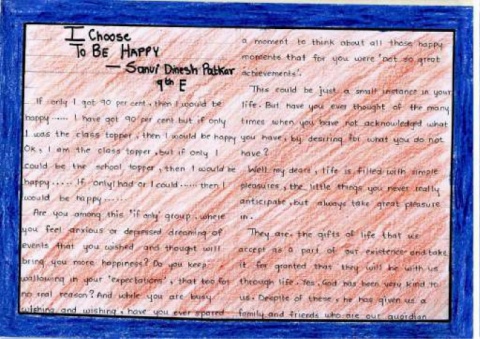 I Choose
TO BE HAPPY
— Sanvi Dinesh Patkar
9th E
If only I got 90 per cent, then I would be
happy ..... I have got 90 per cent but if only
I was the class topper, then I would be happy
Ok, I am the class topper, but if only I
could be the school topper, then I would be
happy ..... If only I had or I could ..... then I
would be happy ......
Are you among this 'if only' group, where
you feel anxious or depressed dreaming of
events that you wished, and thought will
bring you more happiness? Do you keep
wallowing in your 'expectations', that too for
no real reason? And while you are busy
wishing and wishing, have you ever spared
a moment to think about all those happy
moments that for you were 'not so great
achievements'.
This could be just a small instance in your
life. But have you ever thought of the many
times when you have not acknowledged what
you have, by desiring for what you do not
have?
Well my dears, life is filled with simple
pleasures, the little things you never really
anticipate, but always take great pleasure
in.
They are the gifts of life that we
accept as a part of our existence and take
it for granted that they will be with us
through life. Yes, God has been very kind to
us. Despite of these, he has given us a
family and friends who are our guardian